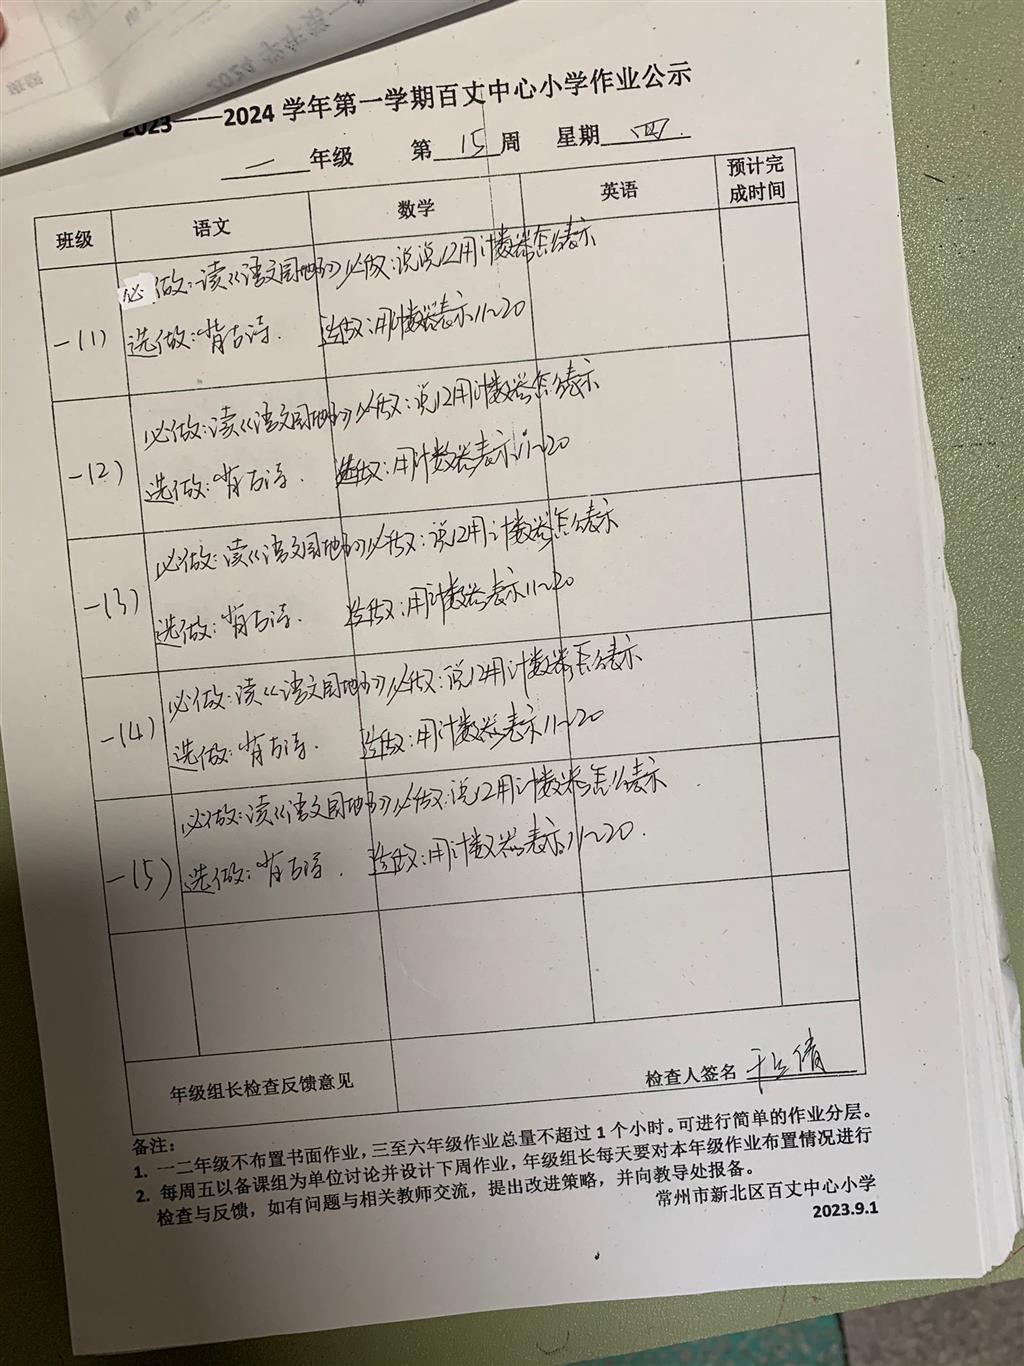 2023——2024 学年第一学期百丈中心小学作业公示
一 年级 第 15 周 星期 四
班级 语文 数学 英语 预计完成时间
一(1) 必做:读《语文园地》 必做:说说12用计数器怎么表示
选做:背古诗. 选做:用计数器表示11~20
一(2) 必做:读《语文园地》 必做:说12用计数器怎么表示
选做:背古诗. 选做:用计数器表示11~20
一(3) 必做:读《语文园地》 必做:说12用计数器怎么表示
选做:背古诗. 选做:用计数器表示11~20
一(4) 必做:读《语文园地》 必做:说12用计数器怎么表示
选做:背古诗. 选做:用计数器表示11~20
一(5) 必做:读《语文园地》 必做:说12用计数器怎么表示
选做:背古诗. 选做:用计数器表示11~20.
年级组长检查反馈意见 检查人签名
备注:
1. 一二年级不布置书面作业,三至六年级作业总量不超过 1 个小时。可进行简单的作业分层。
2. 每周五以备课组为单位讨论并设计下周作业,年级组长每天要对本年级作业布置情况进行
检查与反馈,如有问题与相关教师交流,提出改进策略,并向教导处报备。
常州市新北区百丈中心小学
2023.9.1